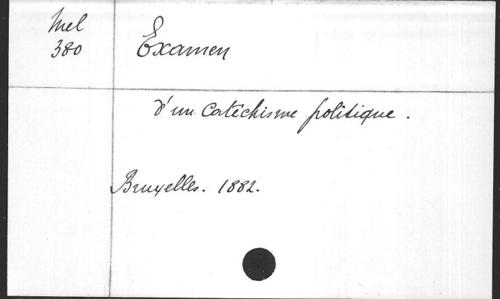 Mel
380
Examen
d'un catéchisme politique.
Bruxelles. 1882.